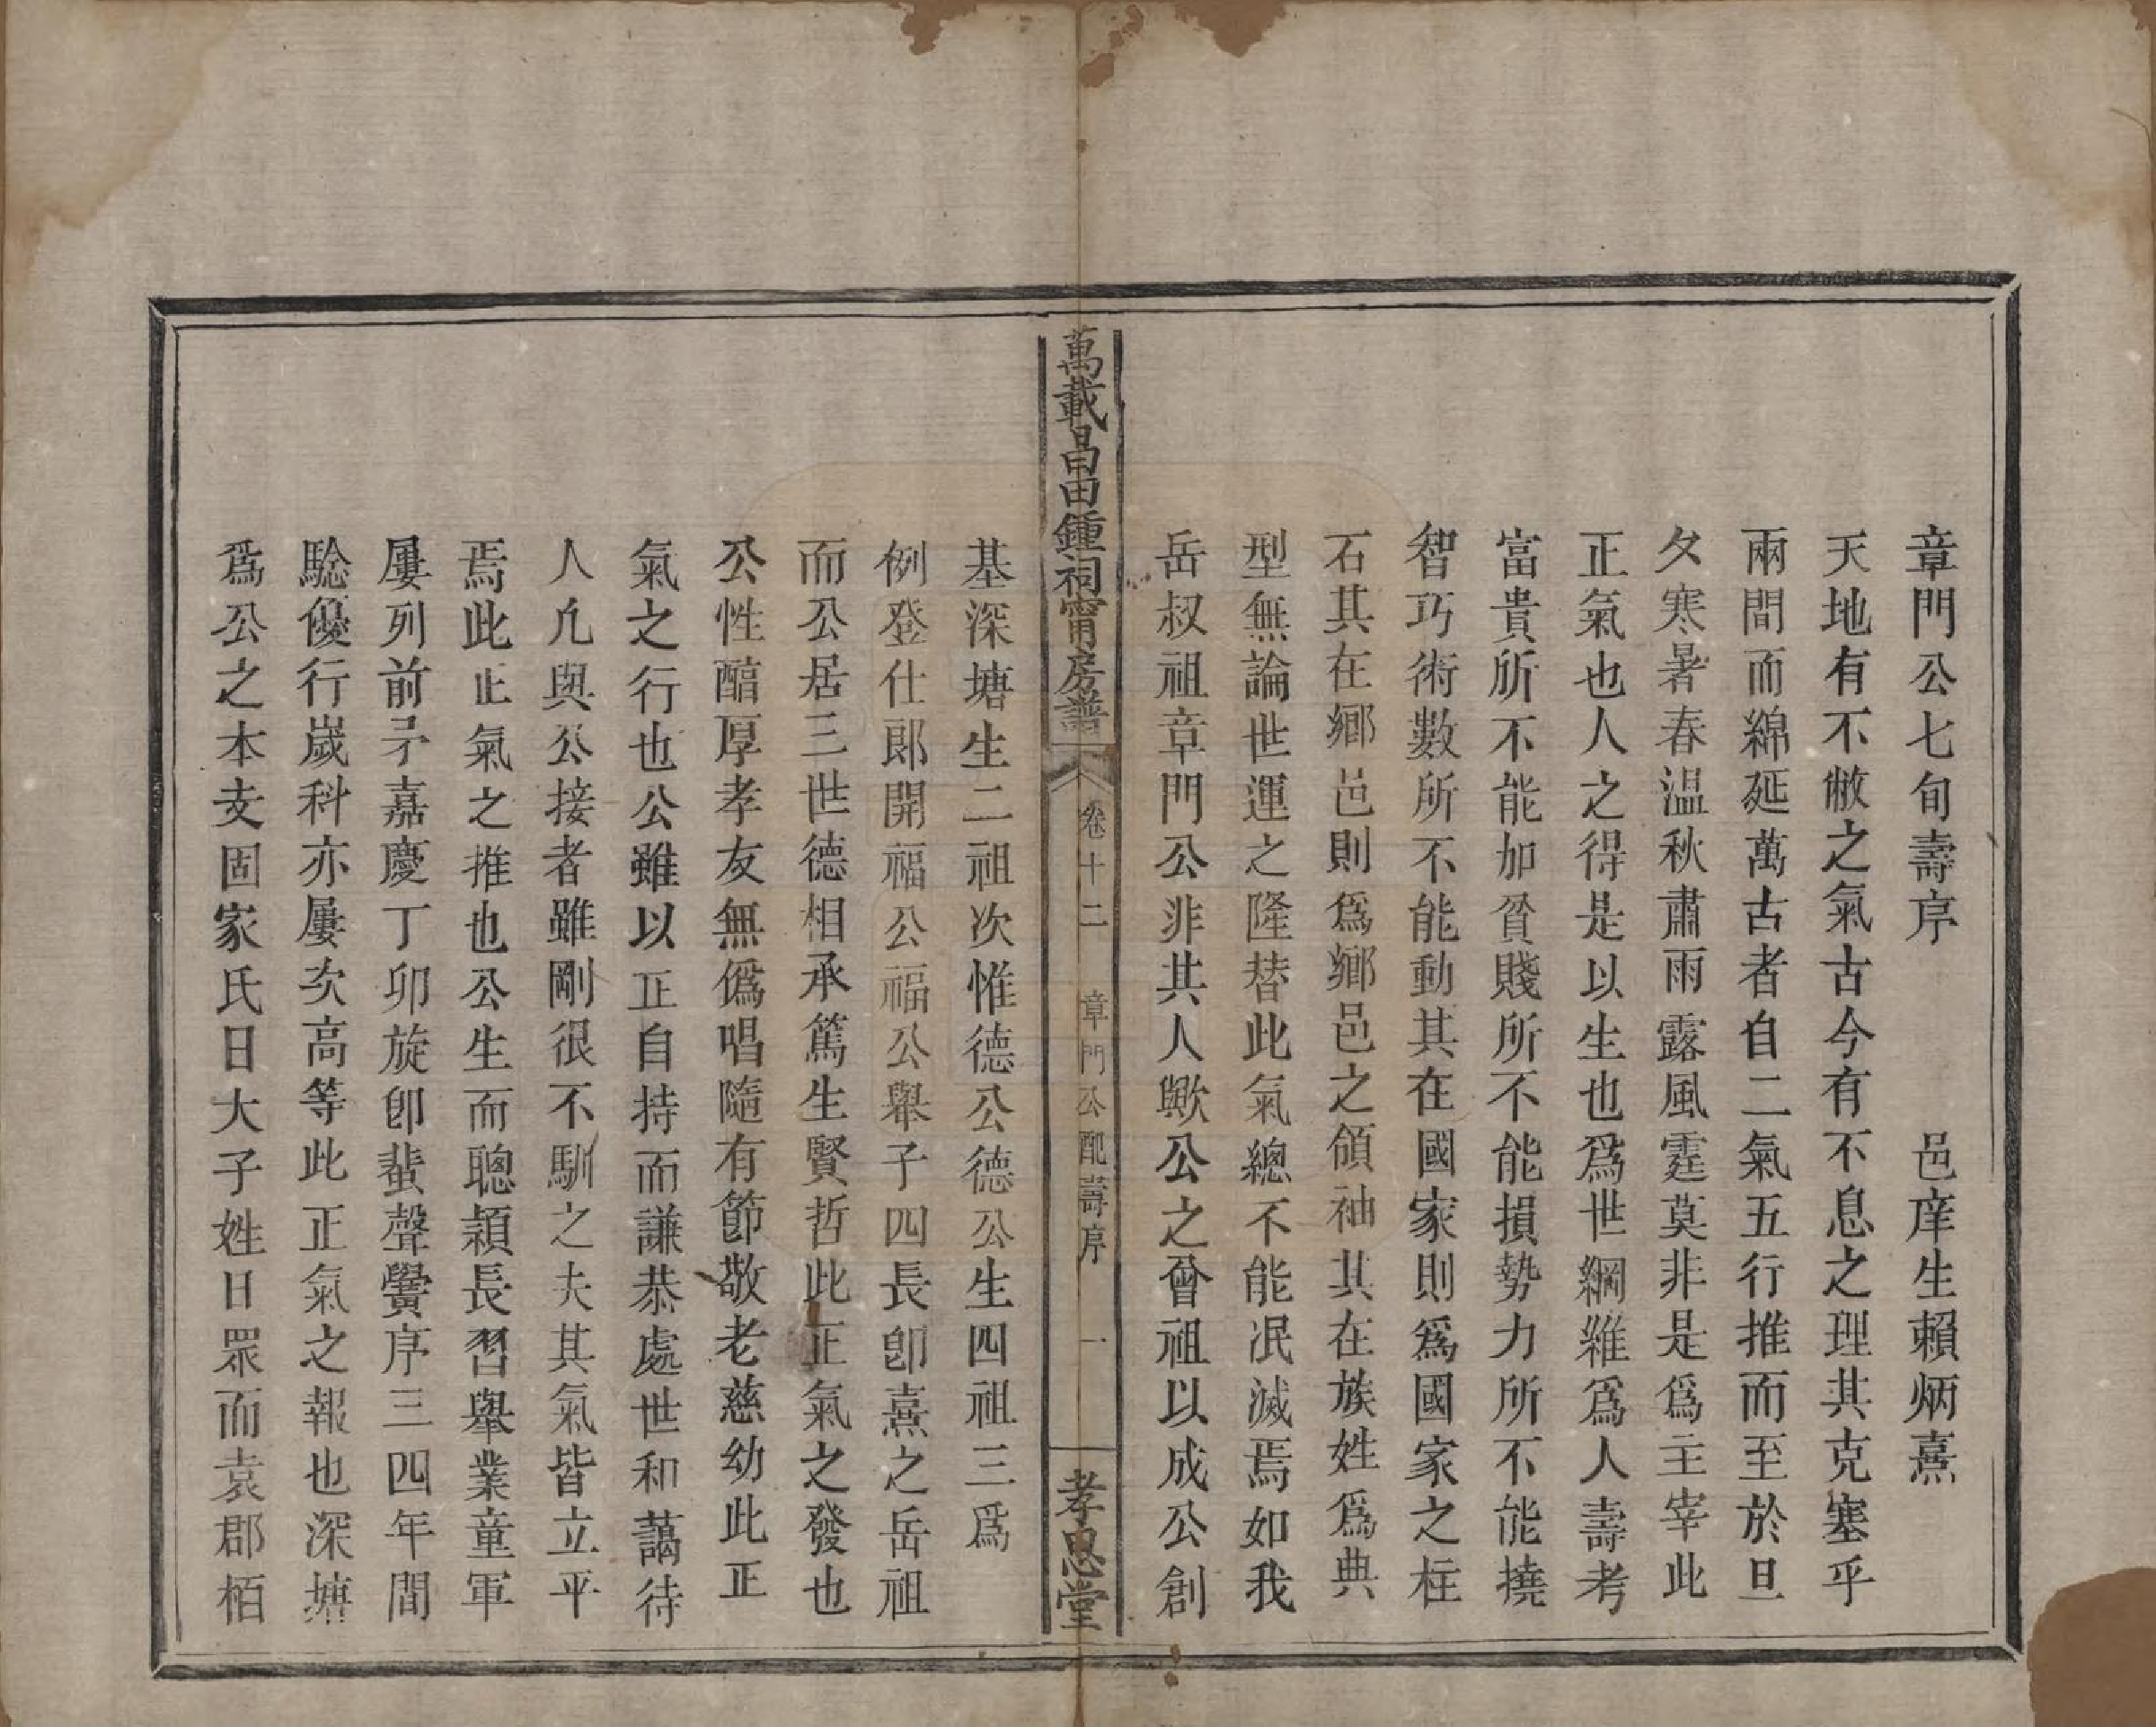 章門公七旬壽序 邑庠生賴炳熹
天地有不敝之氣古今有不息之理其克塞乎
兩間而綿延萬古者自二氣五行推而至於旦
夕寒暑春温秋肅雨露風霆莫非是爲主宰此
正氣也人之得是以生也爲世綱維爲人壽考
富貴所不能加貧賤所不能損勢力所不能撓
智巧術數所不能動其在國家則爲國家之柱
石其在鄉邑則爲鄉邑之領袖其在族姓爲典
型無論世運之隆替此氣總不能泯滅焉如我
岳叔祖章門公非其人歟公之曾祖以成公創
萬載昌田鍾祠甯房譜 卷十二 章門公配壽序 一 孝思堂
基深塘生二祖次惟德公德公生四祖三爲
例登仕郎開福公福公舉子四長卽熹之岳祖
而公居三世德相承篤生賢哲此正氣之發也
公性醕厚孝友無僞唱隨有節敬老慈幼此正
氣之行也公雖以正自持而謙恭處世和藹待
人凢與公接者雖剛很不馴之夫其氣皆立平
焉此正氣之推也公生而聰穎長習舉業童軍
屢列前矛嘉慶丁卯旋卽蜚聲黌序三四年間
騐優行歲科亦屢次高等此正氣之報也深塘
爲公之本支固家氏日大子姓日眾而袁郡栢